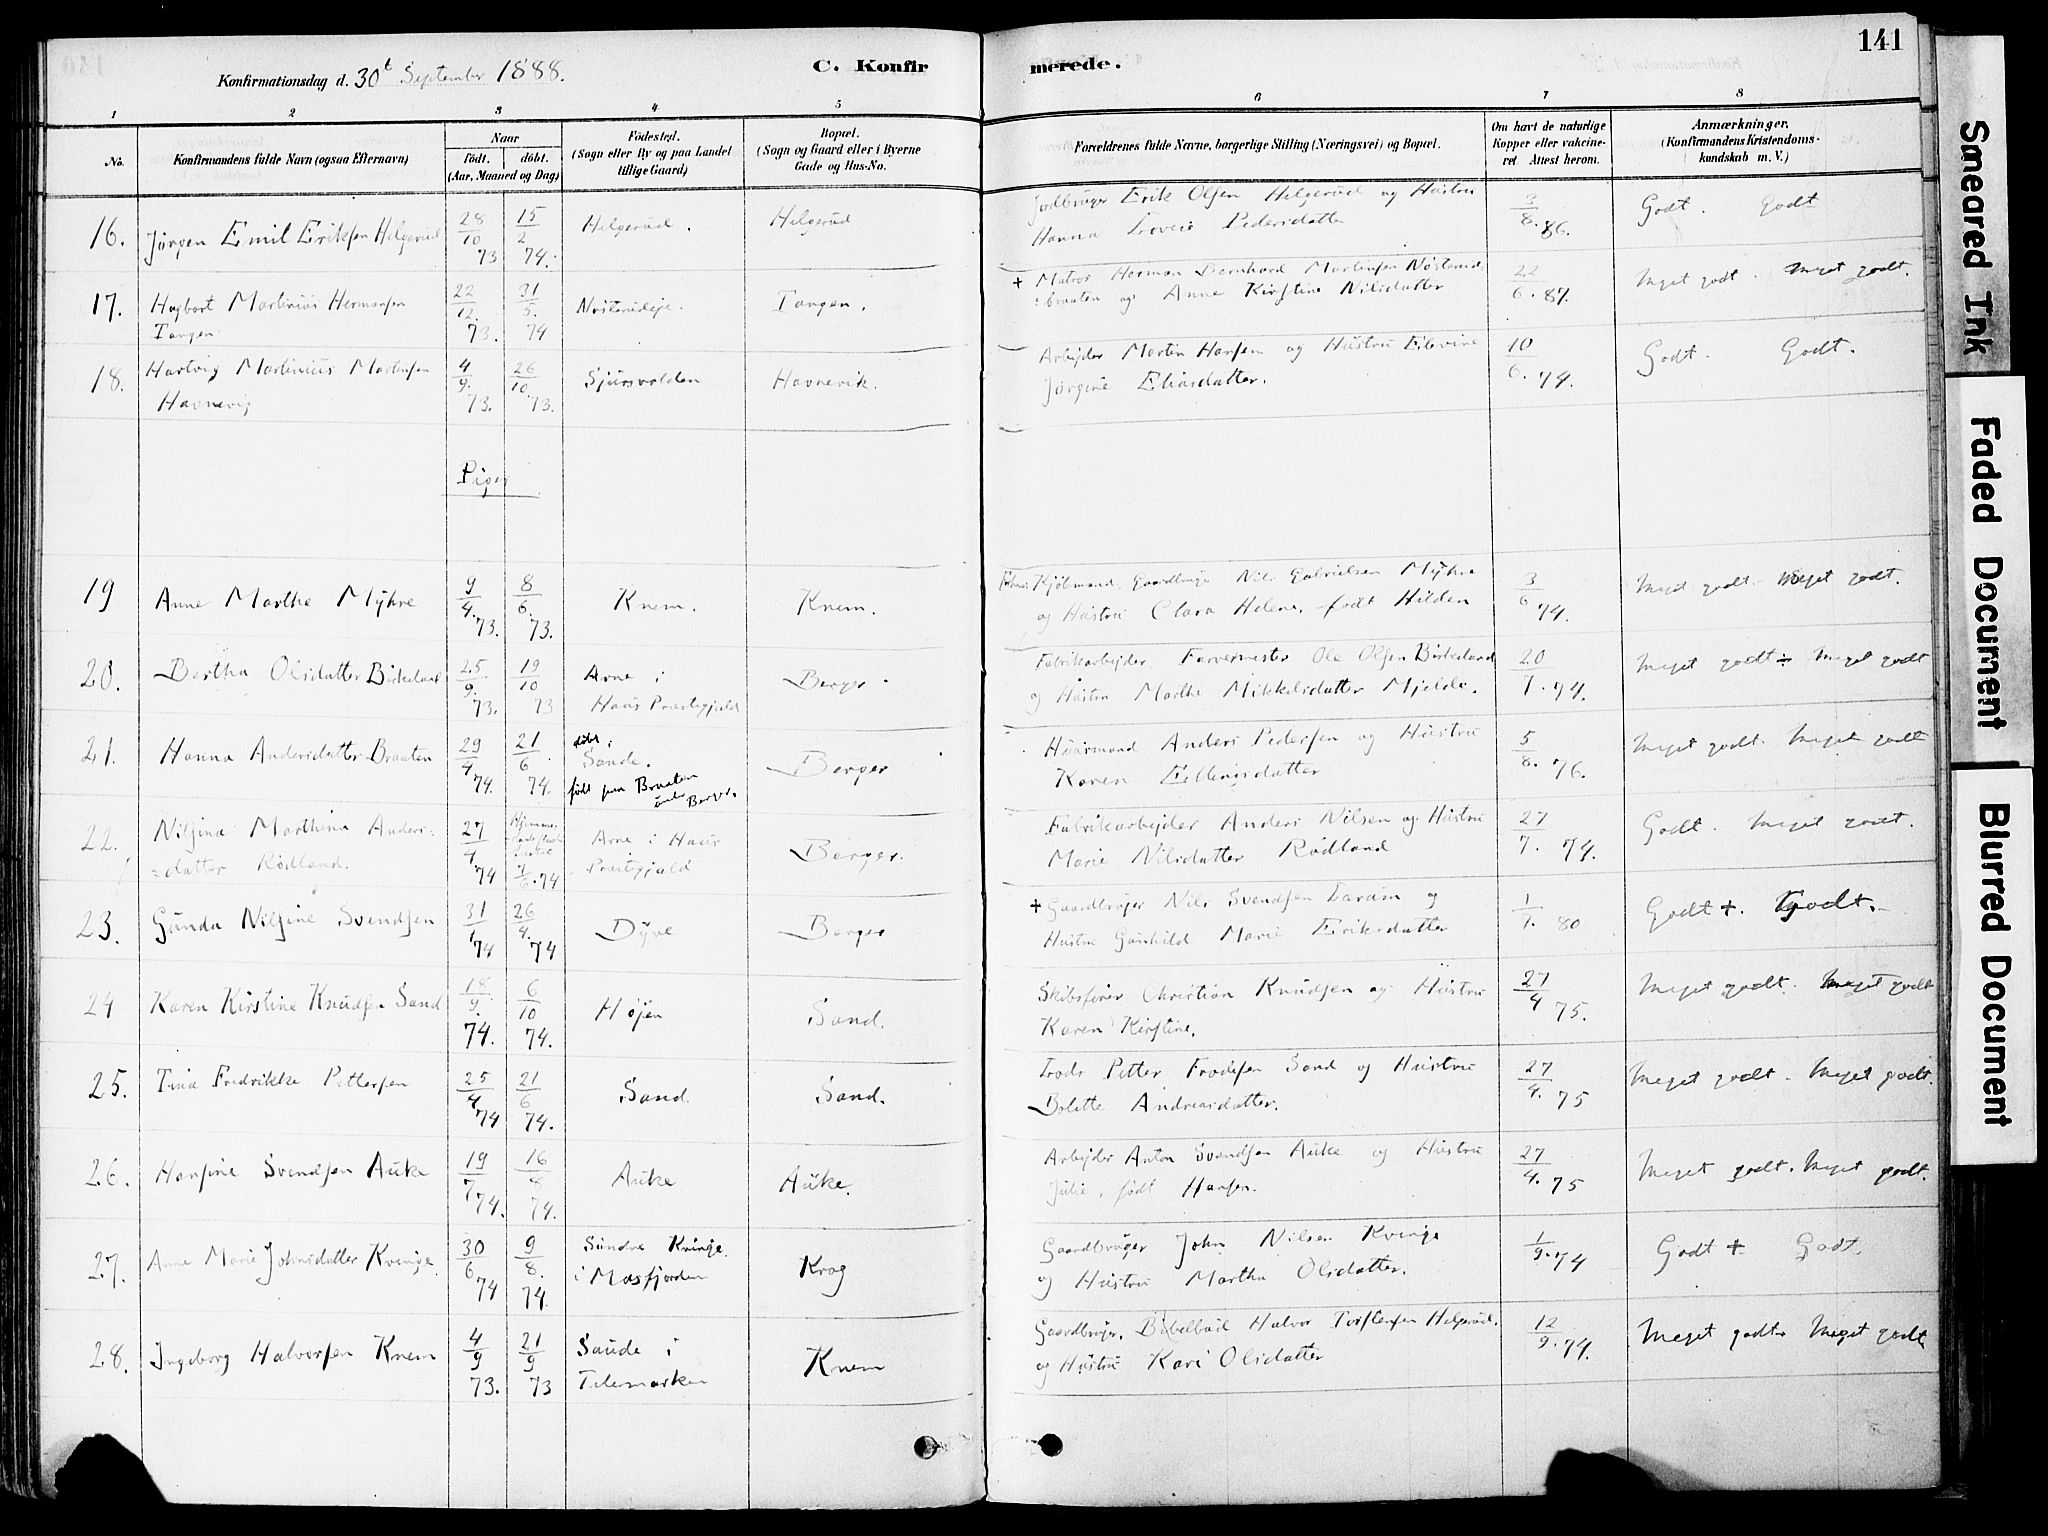 141
Konfirmationsdag d. 30t September 1888.
C. Konfirmerede.
1 2 3 4 5 6 7 8
No.
Konfirmandens fulde Navn (ogsaa Efternavn)
Naar
født. døbt.
(Aar, Maaned og Dag)
Fødested.
(Sogn eller By og paa Landet
tillige Gaard)
Bopæl.
(Sogn og Gaard eller i Byerne
Gade og Hus-No.
Forældrenes fulde Navne, borgerlige Stilling (Næringsvei) og Bopæl.
Om havt de naturlige
Kopper eller vakcine-
ret Attest herom.
Anmærkninger.
(Konfirmandens Kristendoms-
kundskab m. V.)
16. Jørgen Emil Eriksen Helgerud 28/10 73 15/2 74. Helgerud. Helgerud Jordbruger Erik Olsen Helgerud og Hustru 3/8. 86. Godt. Godt
Hanna Lovise Pedersdatter
17. Hagbart Martinius Hermansen 22/12. 73. 31/5. 74 Nøsterudeje. Tangen. + Matros Herman Bernhard Martinsen Nøsterud- 22/6. 87. Meget godt. Meget godt.
Tangen
braaten og Anne Kirstine Nilsdatter
18. Hartvig Martinius Martinsen 4/9. 73. 26/10. 73. Sjursvolden Havnevik. Arbejder Martin Hansen og Hustru Elevine 10/6. 74. Godt. Godt.
Havnevig
Jørgine Eliasdatter.
Piger
19 Anne Marthe Myhre 9/4. 73. 8/6. 73. Knem. Knem. Kjøbmand, Gaardbruger Nils Gabrielsen Myhre 3/6 74. Meget godt. Meget godt.
og Hustru Clara Helene, født Hilden
20. Bertha Olsdatter Birkeland 25/9. 73. 19/10 73 Arne i Berger. Fabrikarbejder Farvermester Ole Olsen Birkeland 20/7. 74. Meget godt ÷ Meget godt
Haus Præstegjæld
og Hustru Marthe Mikkelsdatter Mjelde.
21. Hanna Andersdatter Braaten 29/4 74. 21/6 74. døbt i
Sande.
født paa Braaten
under Berger.
Berger Huusmand Anders Pedersen og Hustru 5/8. 76. Meget godt. Meget godt
Karen Ellingsdatter
22. Nilsina Marthina Anders- 27/4 74 7/6. 74 Arne i Haus Berger. Fabrikarbejder Anders Nilsen og Hustru 27/7. 74. Godt. Meget godt.
=datter Rødland.
Præstegjæld
Marie Nilsdatter Rødland
23. Gunda Nilsine Svendsen 31/1 74 26/4. 74 Dyve Berger + Gaardbruger Nils Svendsen og 1/7. 80 Godt +. Godt.
Hustru Gunhild Marie Eriksdatter
24 Karen Kirstine Knudsen Sand 18/9. 74. 6/10 74. Højen Sand. Skibsfører Christian Knudsen og Hustru 27/4 75. Meget godt. Meget godt
Karen Kirstine.
25. Tina Fredrikke Pettersen 25/4 74 21/6 74. Sand. Sand. Lods Petter Frodesen Sand og Hustru 27/4. 75 Meget godt. Meget godt.
Bolette Andreasdatter.
26. Hansine Svendsen Auke 19/7 74. 16/8 74. Auke Auke. Arbejder Anton Svendsen Auke og Hustru 27/4. 75 Meget godt. Meget godt.
Julie, født Hansen.
27. Anne Marie Johnsdatter Kvinge 30/6 74 9/8. 74. Søndre Kvinge Krag Gaardbruger John Nilsen Kvinge 1/9. 74 Godt + Godt.
i Masfjorden
og Hustru Martha Olsdatter.
28. Ingeborg Halvorsen Knem 4/9 73. 21/9 73 Saude i Knem Gaardbruger, Bibelbud Halvor Torstensen Helgerud. 12/9. 74. Meget godt Meget godt
Telemarken
og Hustru Kari Olsdatter
Smeared Ink
Faded Document
Blurred Document